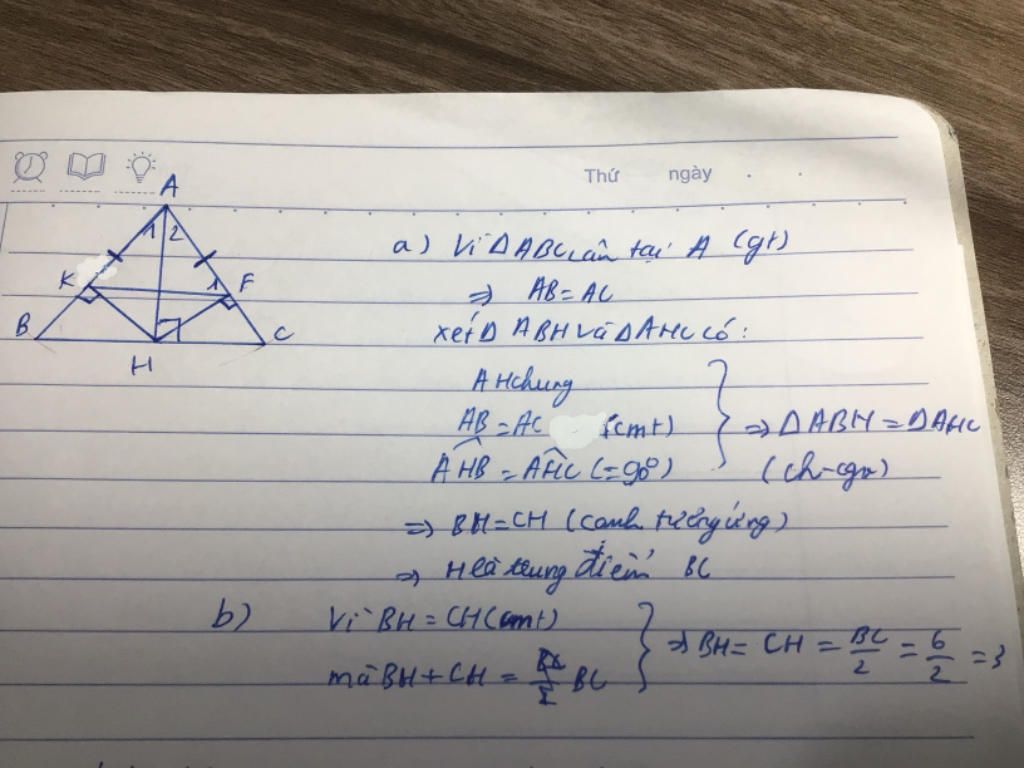 Thứ ngày
A
1 2
K 1 F
B C
H
a) Vì Δ ABC cân tại A (gt)
⇒ AB = AC
xét Δ ABH và Δ AHC có:
AH chung
AB = AC (cmt)
\widehat{AHB} = \widehat{AHC} (=90°)
} ⇒ Δ ABH = Δ AHC
(ch-cgv)
⇒ BH = CH (cạnh tương ứng)
⇒ H là trung điểm BC
b) Vì BH = CH (cmt)
mà BH + CH = BC
} ⇒ BH = CH = \frac{BC}{2} = \frac{6}{2} = 3